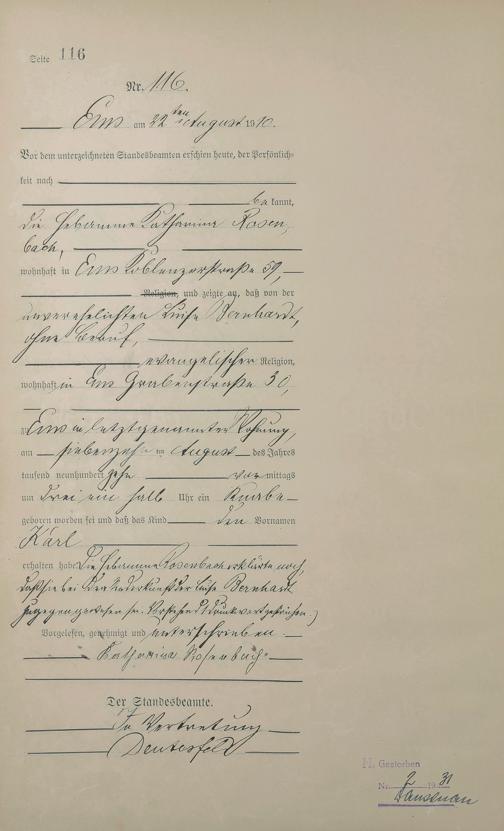 Seite 116
Nr. 116.
Ems am 22ten August 1910.
Vor dem unterzeichneten Standesbeamten erschien heute, der Persönlich-
keit nach
bekannt,
die Hebamme Katharina Rosen-
bach,
wohnhaft in Ems Koblenzerstraße 59,
Religion, und zeigte an, daß von der
unverehelichten Luise Bernhardt,
ohne Beruf,
evangelischer Religion,
wohnhaft in Ems Grabenstraße 30,
zu Ems in letztgenannter Wohnung,
am siebenzehn ten August des Jahres
tausend neunhundert zehn vormittags
um drei ein halb Uhr ein Knabe
geboren worden sei und daß das Kind den Vornamen
Karl
erhalten habe. Die Hebamme Rosenbach erklärte noch,
daß sie bei der Niederkunft der Luise Bernhardt
zugegen gewesen sei. Vorstehend 1 Druckwort gestrichen.
Vorgelesen, genehmigt und unterschrieben
Katharina Rosenbach
Der Standesbeamte.
In Vertretung
H. Gestorben
Nr. 2 1931